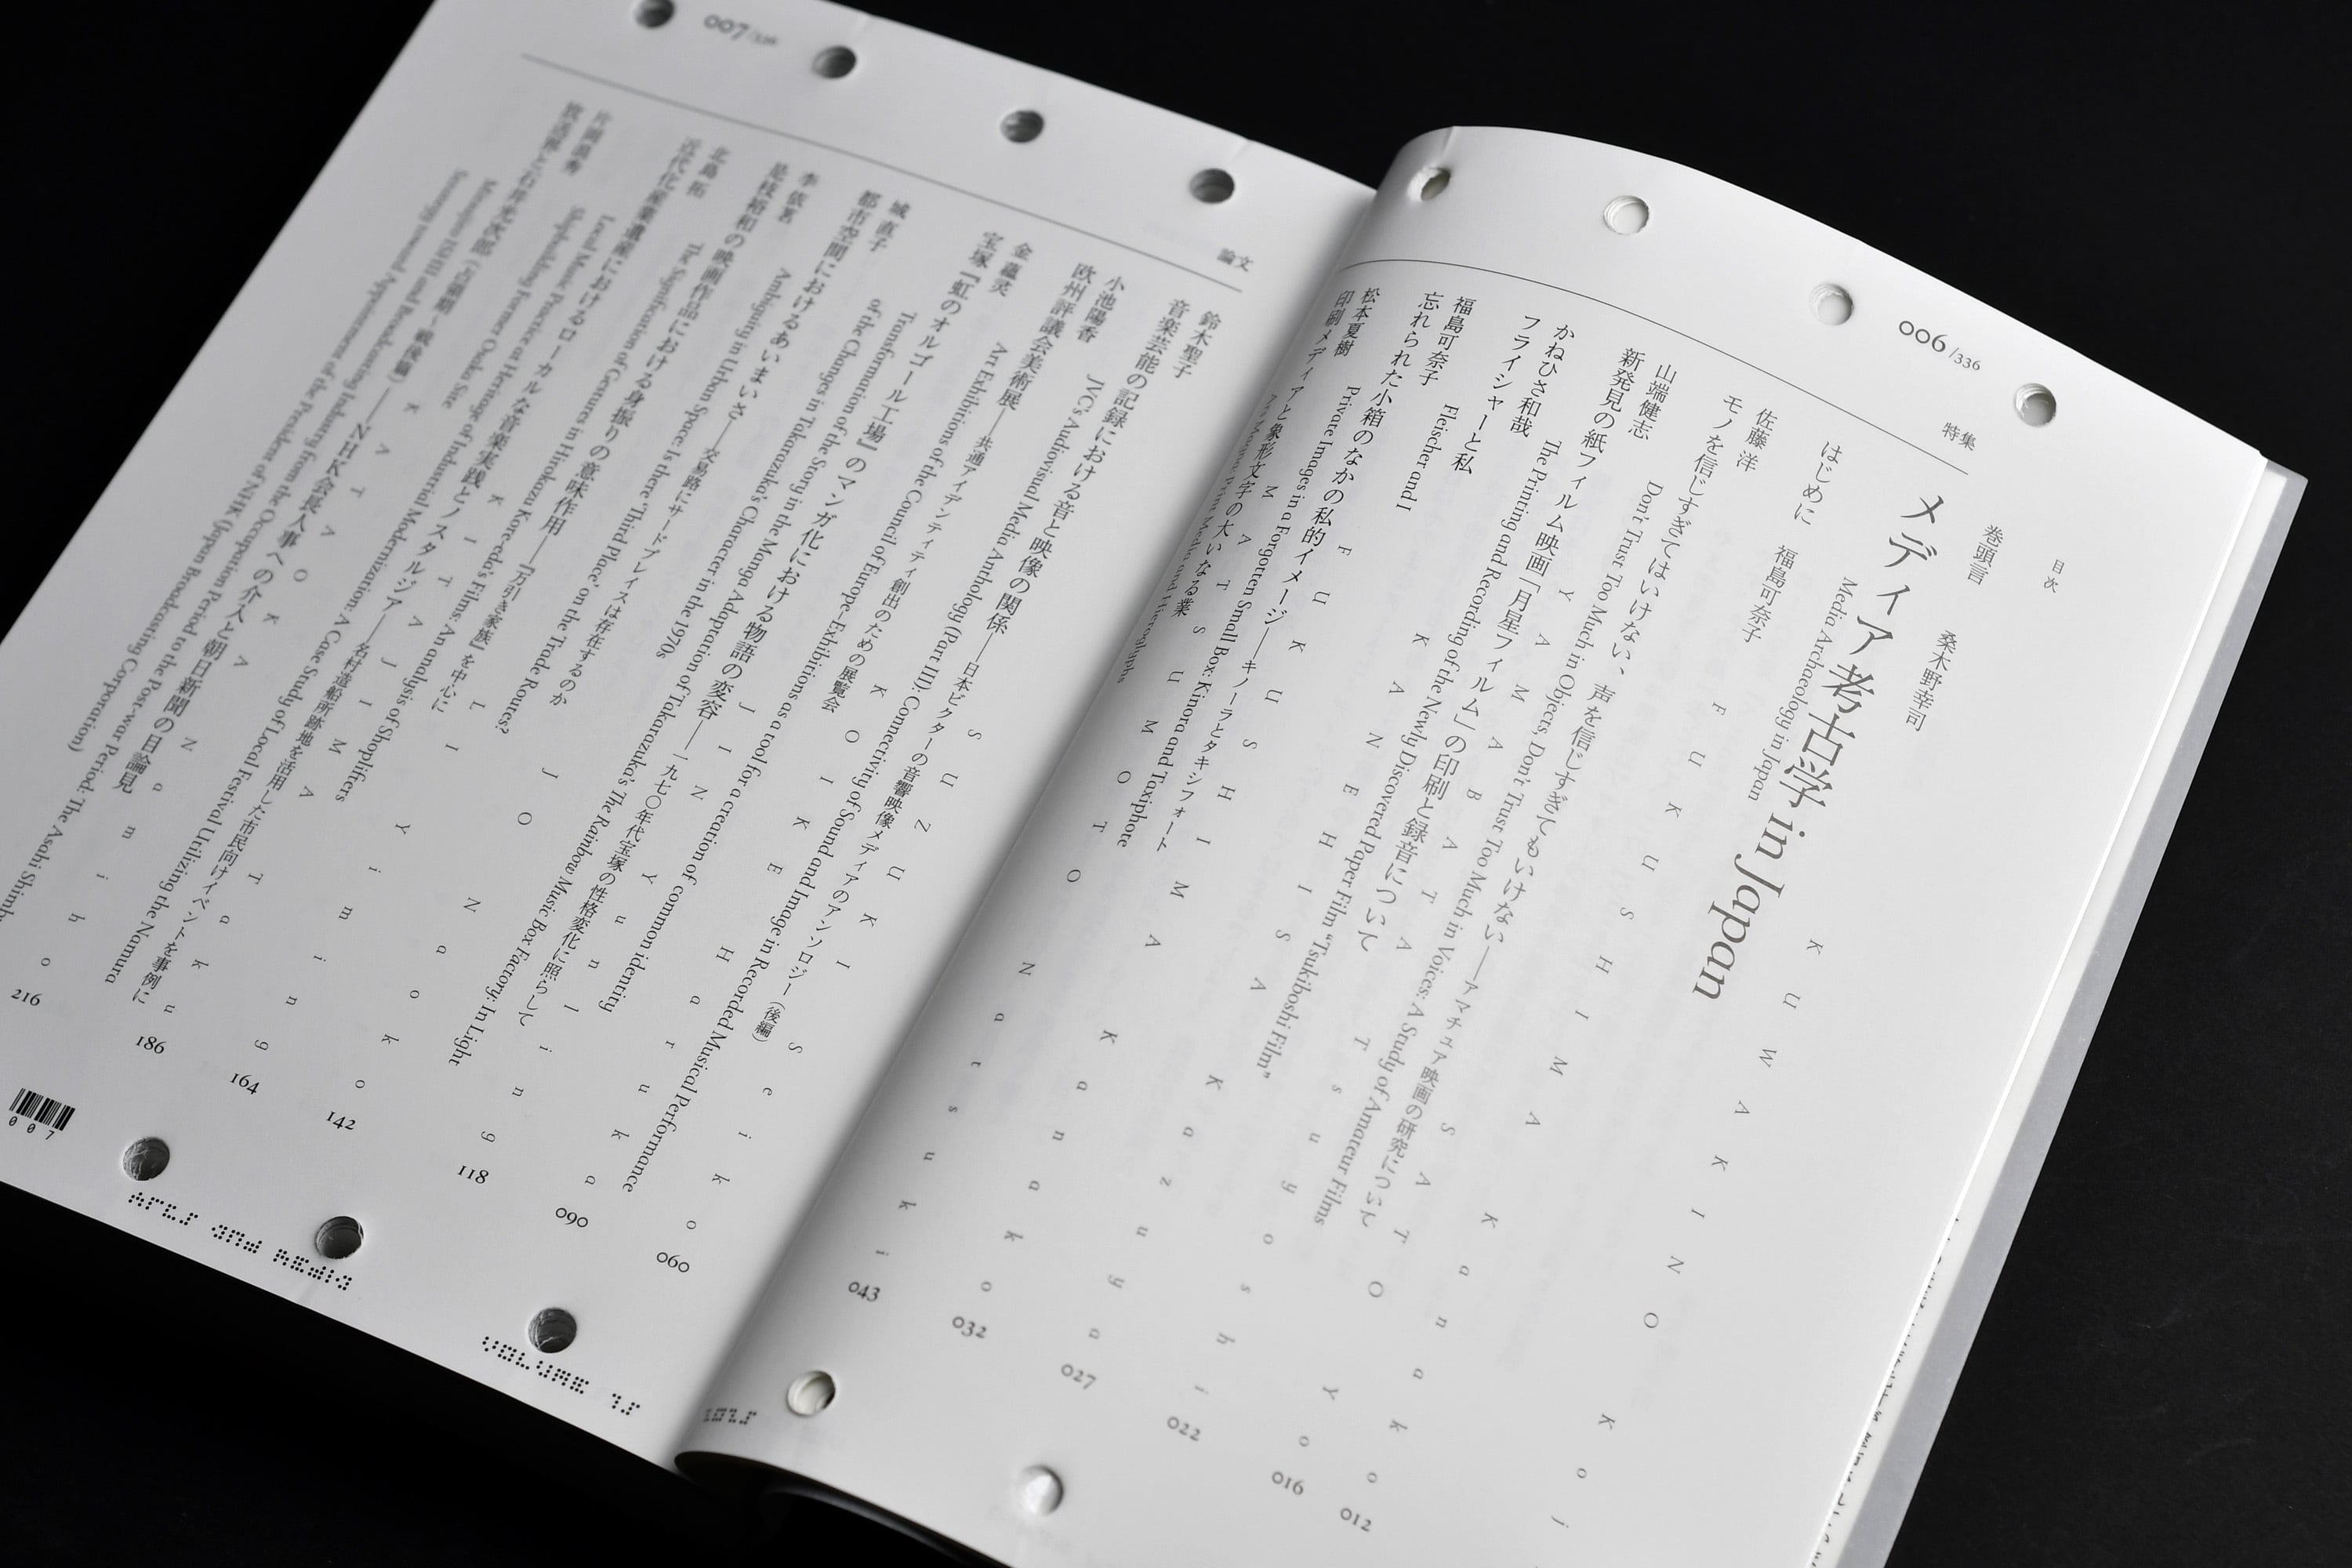 006/336
目次
巻頭言
桑木野幸司
KUWAKINO Koj
特集
メディア考古学 in Japan
Media Archaeology in Japan
はじめに
福島可奈子
FUKUSHIMA Kanako
012
佐藤 洋
モノを信じすぎてはいけない、声を信じすぎてもいけない——アマチュア映画の研究について
Don't Trust Too Much in Objects, Don't Trust Too Much in Voices: A Study of Amateur Films
SATO Yo
016
山端健志
新発見の紙フィルム映画「月星フィルム」の印刷と録音について
The Printing and Recording of the Newly Discovered Paper Film “Tsukiboshi Film”
YAMABATA Tsuyoshi
022
かねひさ和哉
フライシャーと私
Fleischer and I
KANEHISA Kazuya
027
福島可奈子
忘れられた小箱のなかの私的イメージ——キノーラとタキシフォート
Private Images in a Forgotten Small Box: Kinora and Taxiphote
FUKUSHIMA Kanako
032
松本夏樹
印刷メディアと象形文字の大いなる業
Print Media and Hieroglyphs
MATSUMOTO Natsuki
043
007/336
論文
鈴木聖子
音楽芸能の記録における音と映像の関係——日本ビクターの音響映像メディアのアンソロジー(後編)
JVC's Audiovisual Media Anthology (Part III): Connectivity of Sound and Image in Recorded Musical Performance
SUZUKI Seiko
060
小池陽香
欧州評議会美術展——共通アイデンティティ創出のための展覧会
Art Exhibitions of the Council of Europe-Exhibitions as a tool for a creation of common identity
KOIKE Haruka
090
金 蘊英
宝塚『虹のオルゴール工場』のマンガ化における物語の変容——一九七〇年代宝塚の性格変化に照らして
Transformation of the Story in the Manga Adaptation of Takarazuka's The Rainbow Music Box Factory: In Light
of the Changes in Takarazuka's Character in the 1970s
JIN Yunling
118
城 直子
都市空間におけるあいまいさ——交易路にサードプレイスは存在するのか
Ambiguity in Urban Space: Is there ‘Third Place’ on the Trade Routes?
JO Naoko
142
李 依茗
是枝裕和の映画作品における身振りの意味作用——『万引き家族』を中心に
The Signification of Gestures in Hirokazu Kore-eda's Films: An analysis of Shoplifters
LI Yiming
164
北島 拓
近代化産業遺産におけるローカルな音楽実践とノスタルジア——名村造船所跡地を活用した市民向けイベントを事例に
Local Music Practice at Heritage of Industrial Modernization: A Case Study of Local Festival Utilizing the Namura
Shipbuilding Former Osaka Site
KITAJIMA Taku
186
NHK会長人事への介入と朝日新聞の日論見
from the Occupation Period to the Post-war Period: The Asahi Shimb
Appointment of the President of NHK (Japan Broadcasting Corporation)
KATAOKA Namiho
216
007